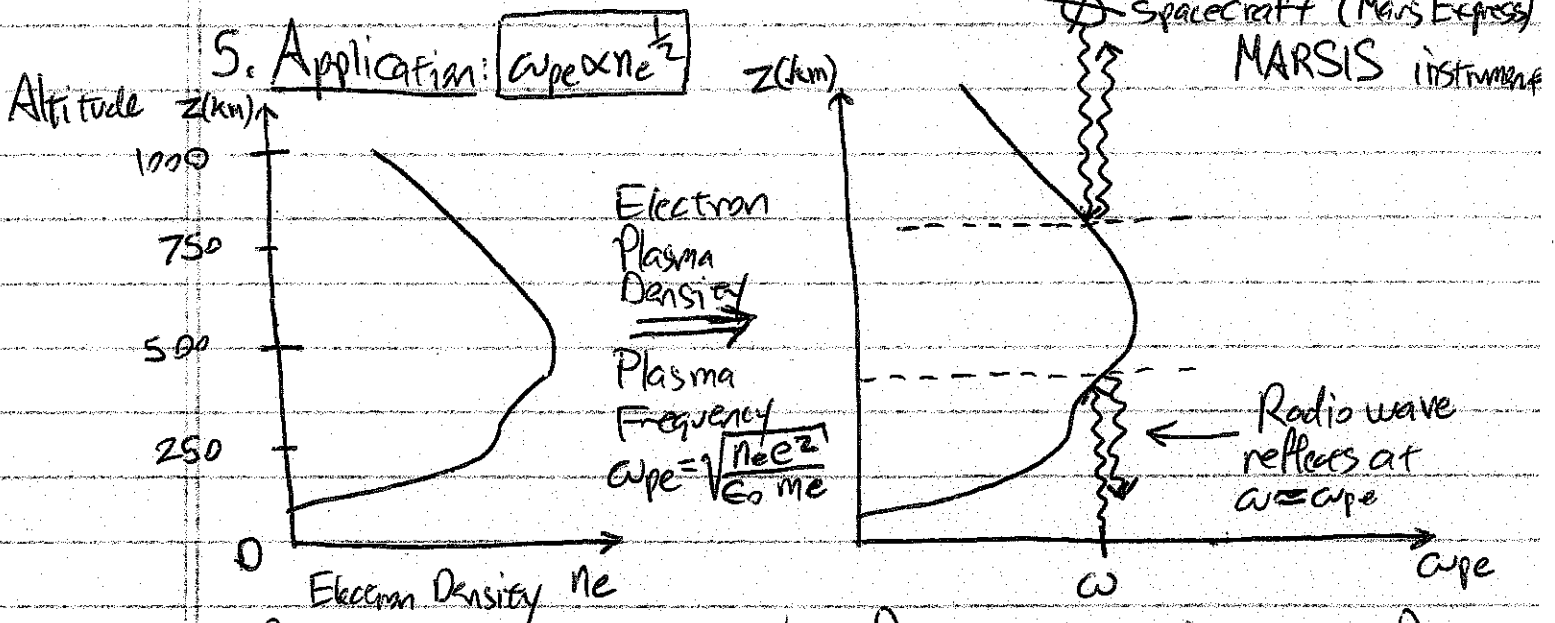 Spacecraft (Mars Express)
MARSIS instrument
5. Application: ωpe ∝ ne^1/2
Altitude z(km)
1000
750
500
250
0
Electron Density ne
Electron
Plasma
Density
Plasma
Frequency
ωpe = √(ne e^2 / ε0 me)
z(km)
Radio wave
reflects at
ω≈ωpe
ω
ωpe